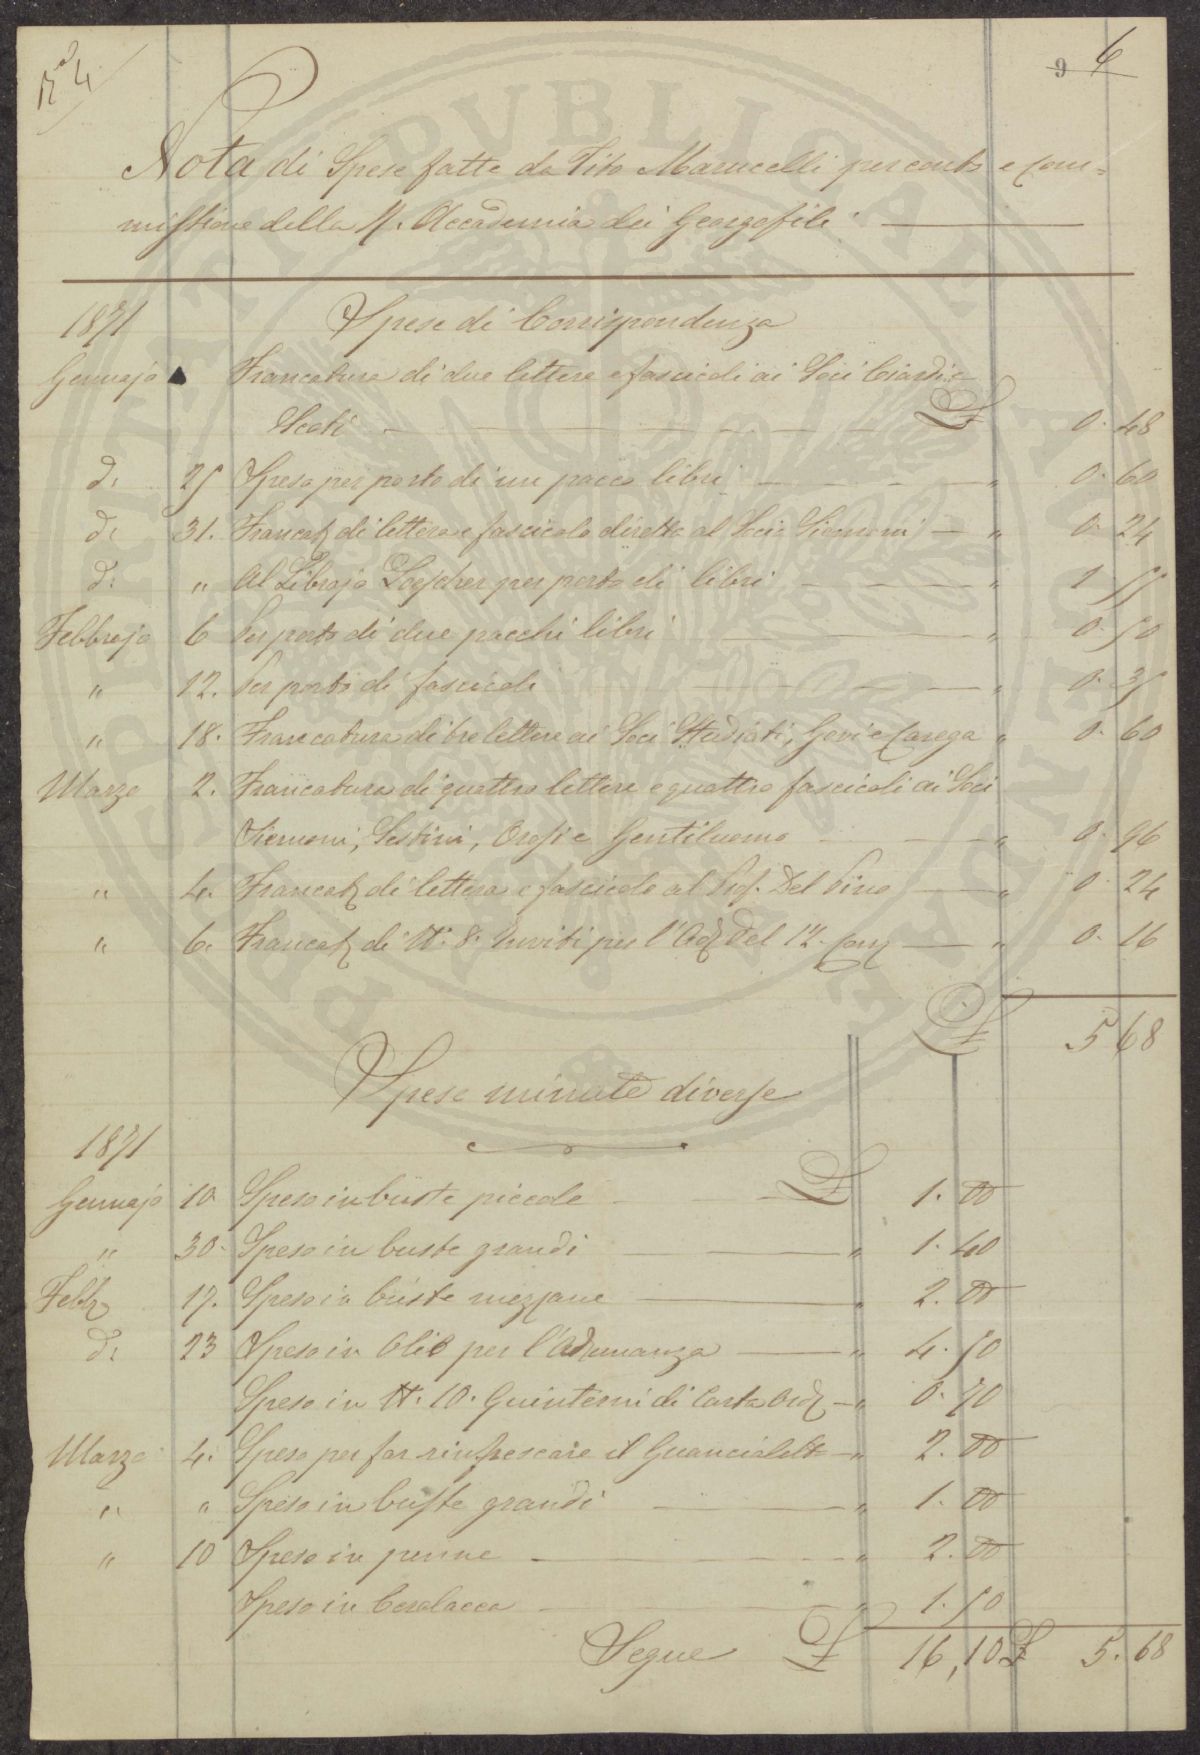 N° 4.
9 6
Nota di Spese fatte da Tito Marucelli per conto e Com=
missione della R. Accademia dei Georgofili
1871 Spese di Corrispondenza
Gennajo Francatura di due lettere e fascicoli ai Soci Ciardi e
Scoti £ 0. 48
d: 25 Speso per porto di un pacco libri " 0. 60
d: 31. Francat. di lettera e fascicolo diretto al Socio Siemoni " 0. 24
d: " Al Librajo Loescher per porto di libri " 1 55
Febbrajo 6 Per porto di due pacchi libri " 0. 50
" 12. Per porto di fascicoli " 0. 35
" 18. Francatura di tre lettere ai Soci Studiati, Govi e Carega " 0. 60
Marzo 2. Francatura di quattro lettere e quattro fascicoli ai Soci
Siemoni, Sestini, Orosi e Gentiluomo " 0. 96
" 4. Francat. di lettera e fascicolo al Prof. Del Pino " 0. 24
" 6. Francat. di N.° 8. Inviti per l'Ad. del 12. Corr. " 0. 16
£ 5 68
Spese minute diverse
1871
Gennajo 10 Speso in buste piccole £ 1. 00
" 30. Speso in buste grandi " 1. 40
Febb. 17. Speso in buste mezzane " 2. 00
d: 23 Speso in Olio per l'Adunanza " 4. 50
Speso in N.° 10. Quinterni di Carta Ord. " 0. 70
Marzo 4. Speso per far rinfrescare il Guancialetto " 2. 00
" " Speso in buste grandi " 1. 00
" 10 Speso in penne " 2. 00
Speso in Ceralacca " 1. 50
Segue £ 16, 10 £ 5. 68
PROSPERITATI PVBLICAE AVGENDAE